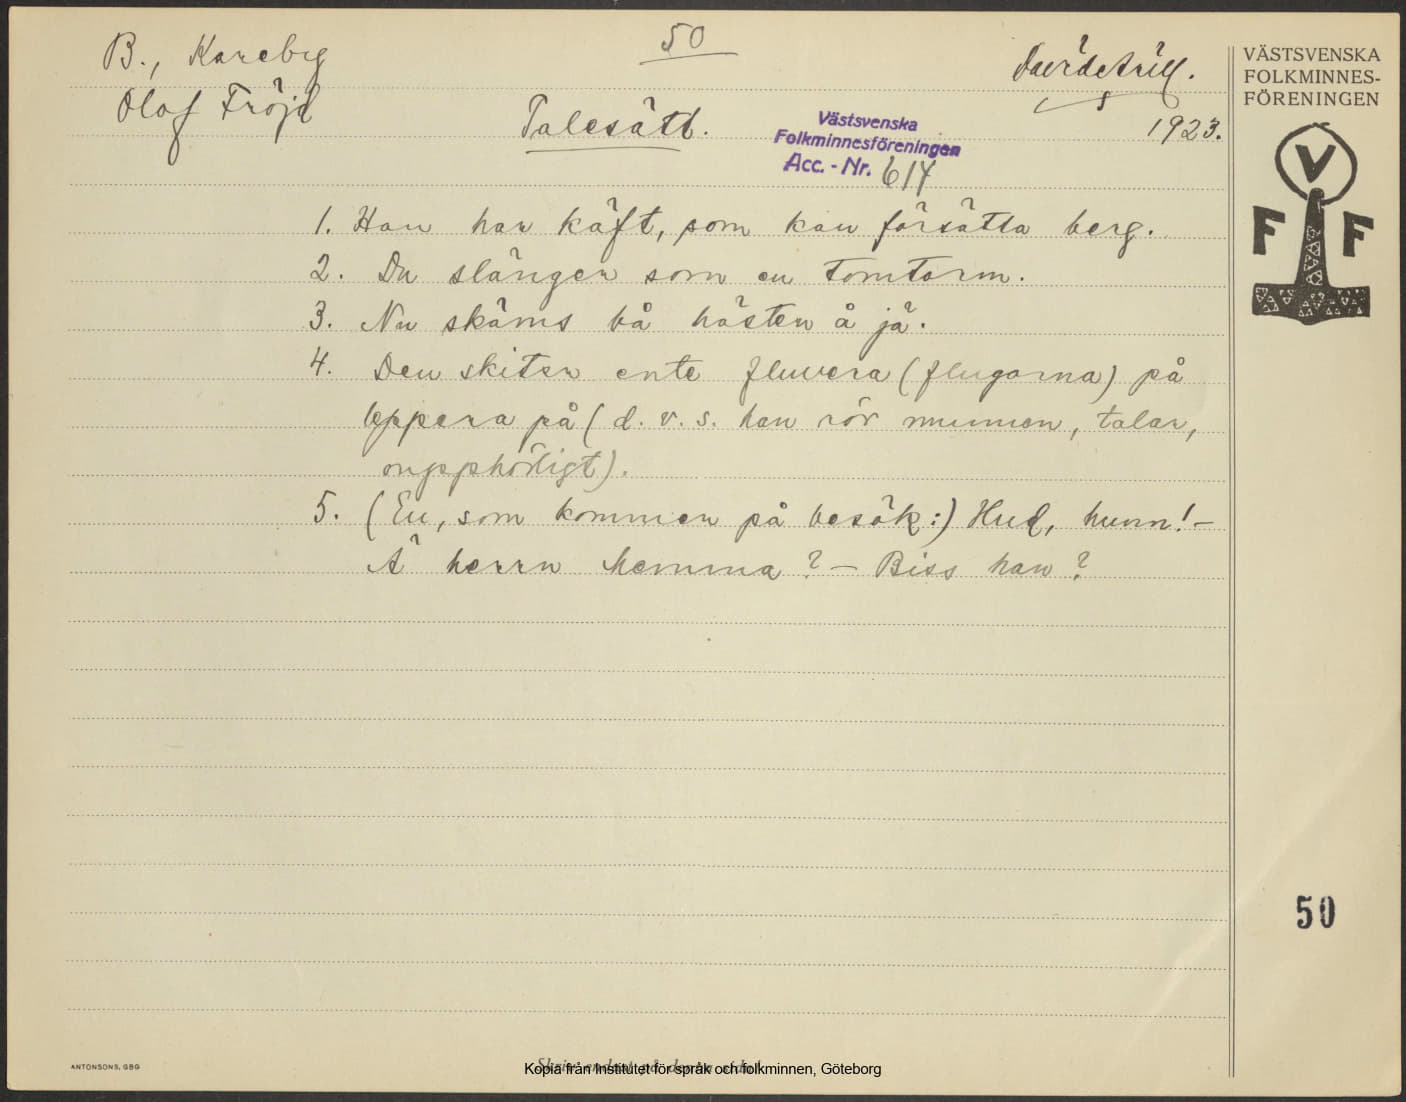 50
B., Kareby
Olof Fröjd
Talesätt.
1923.
Västsvenska
Folkminnesföreningen
Acc. - Nr. 614
VÄSTSVENSKA
FOLKMINNES-
FÖRENINGEN
V
F F
1. Han har käft, som kan försätta berg.
2. Du slänger som en tomtarm.
3. Nu skäms bå hästen å jä.
4. Den skiter ente fluvera (flugorna) på
läppera på (d. v. s. han rör munnen, talar,
oupphörligt).
5. (En, som kommer på besök:) Hud, hunn! –
Ä herrn hemma? – Biss han?
50
ANTONSONS, GBG
Kopia från Institutet för språk och folkminnen, Göteborg